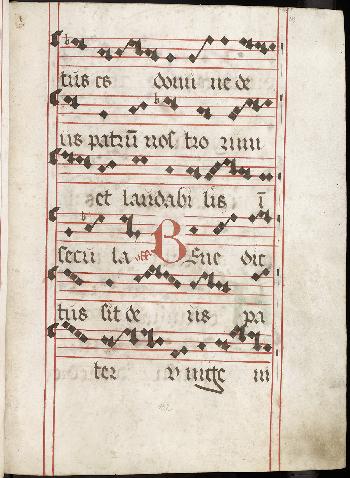 tus es domine de
us patrū nos tro rum
et laudabi lis ī
secu la Bene dic
tus sit de us pa
ter